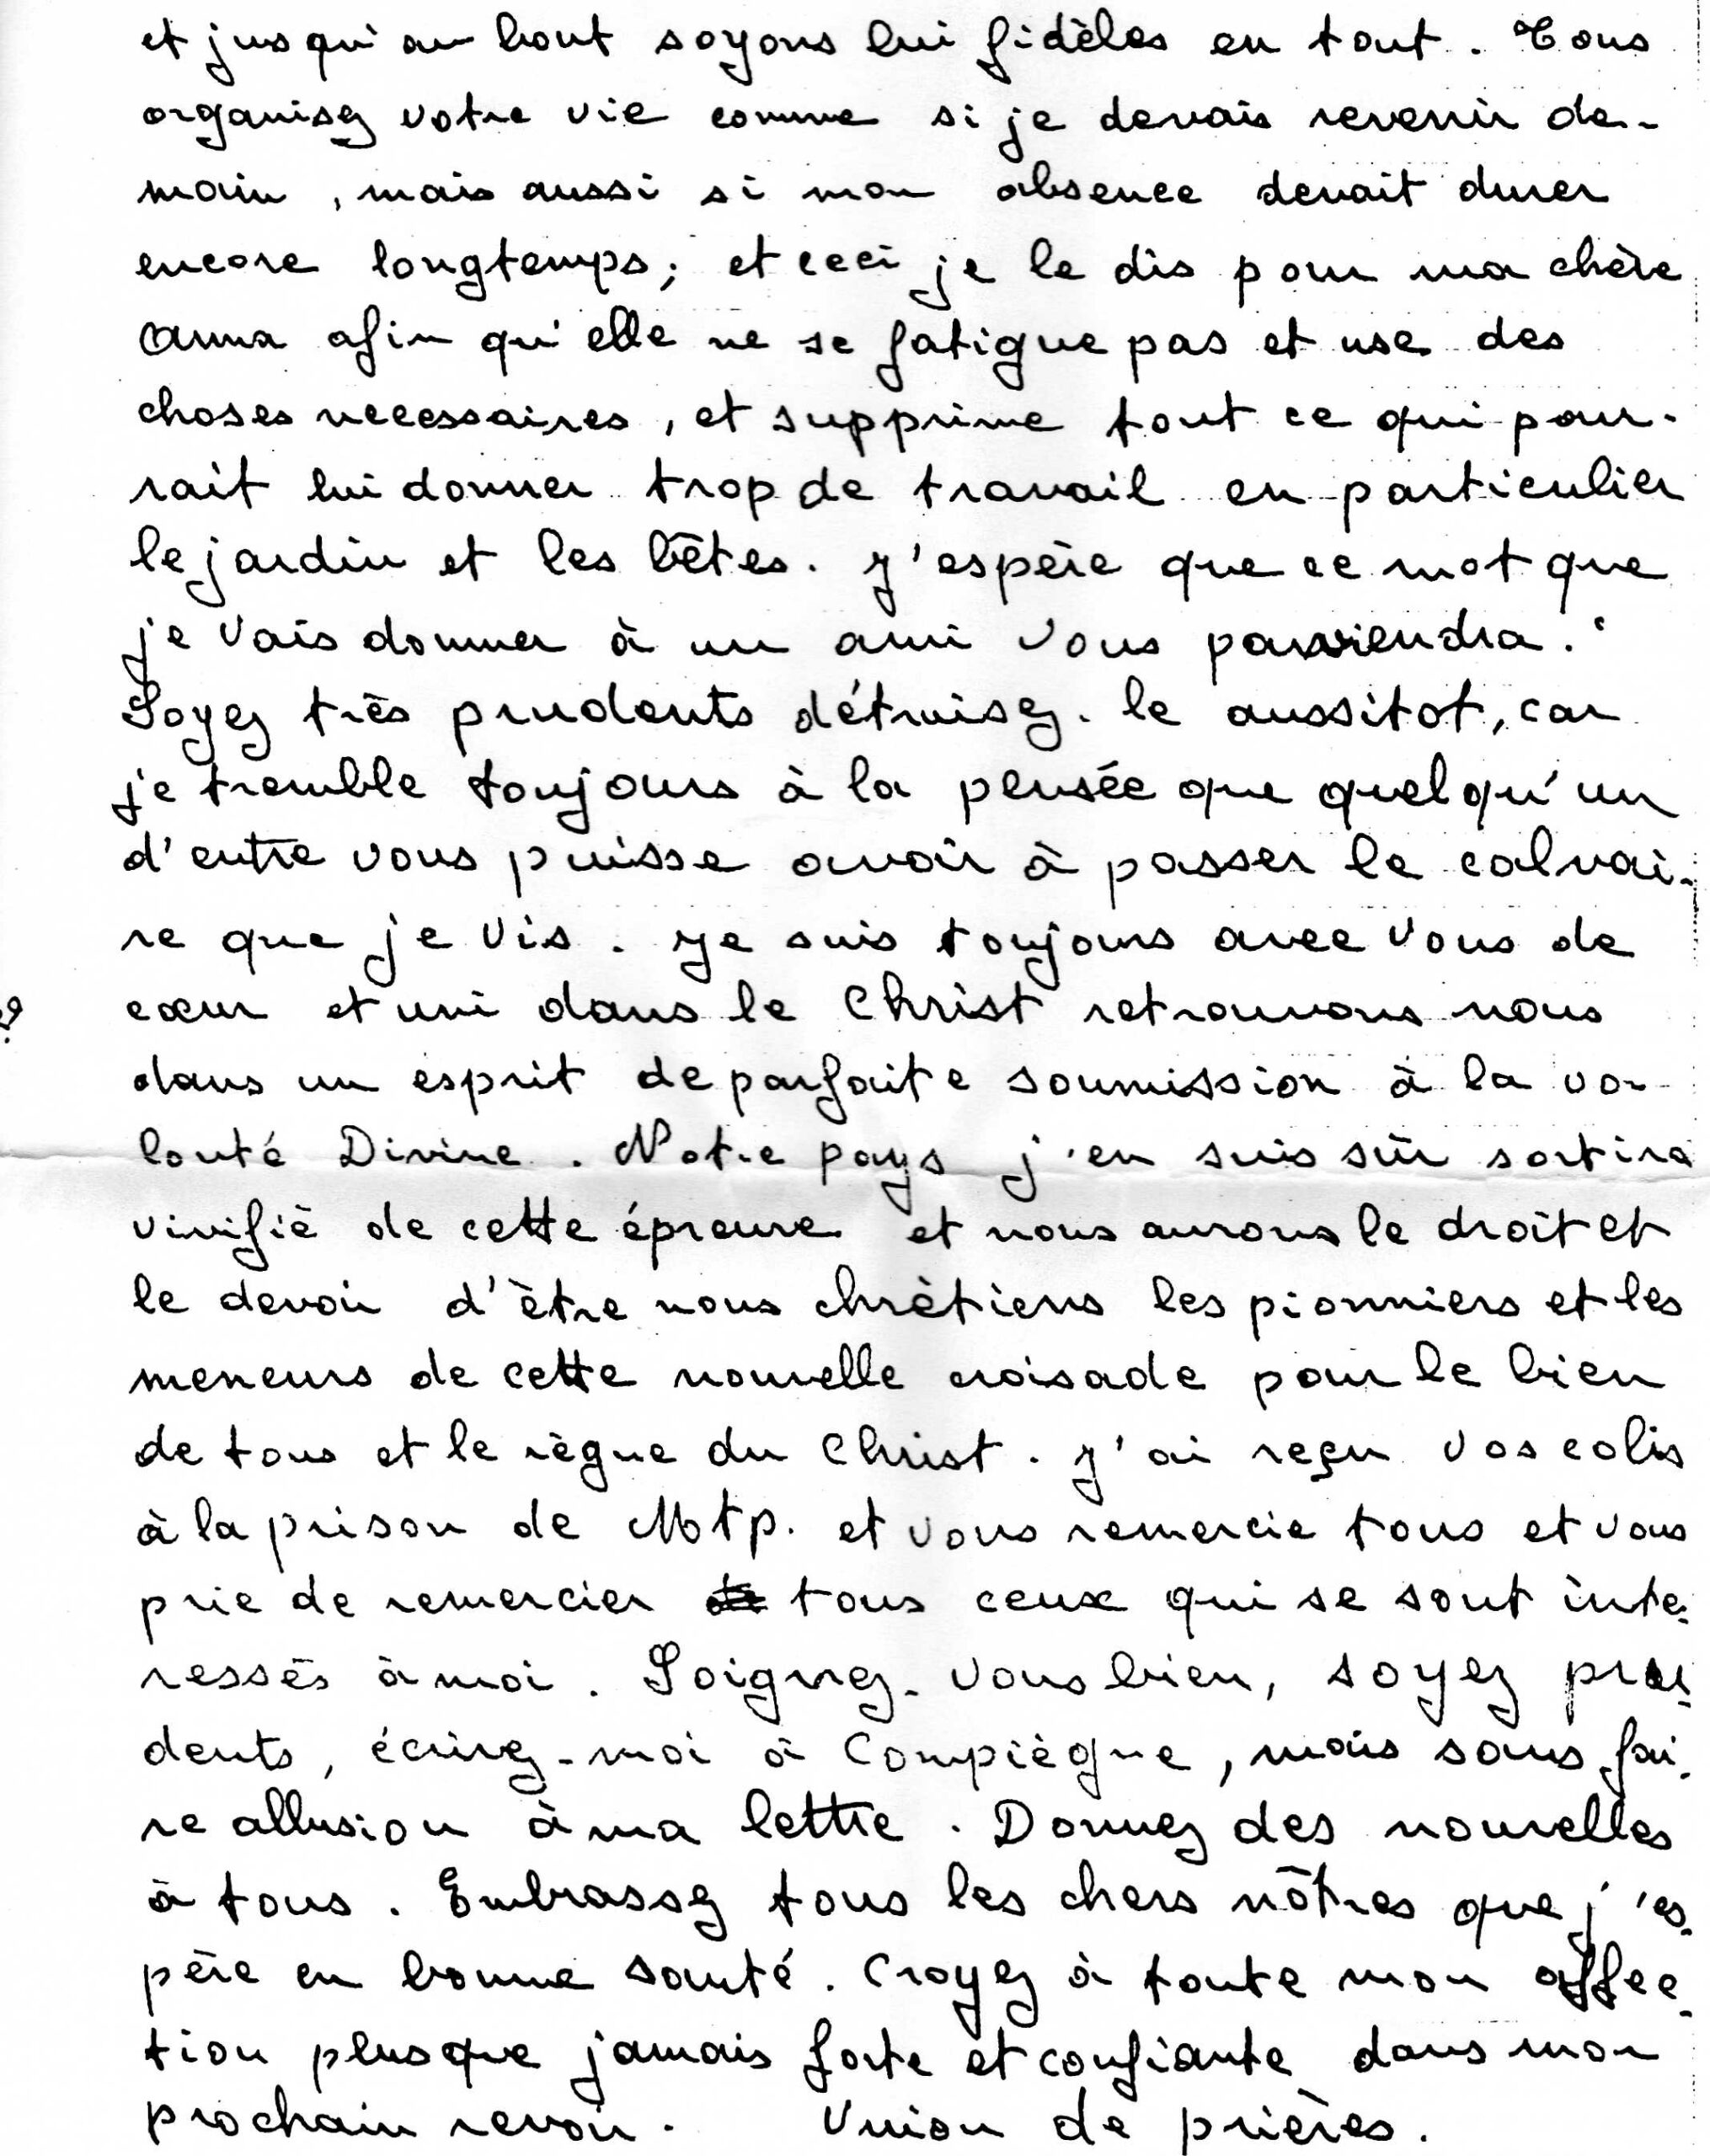 et jusqu'au bout soyons lui fidèles en tout. Tous
organisez votre vie comme si je devais revenir de-
main, mais aussi si mon absence devait durer
encore longtemps; et ceci je le dis pour ma chère
Anna afin qu'elle ne se fatigue pas et use des
choses necessaires, et supprime tout ce qui pour-
rait lui donner trop de travail en particulier
le jardin et les bêtes. J'espère que ce mot que
je vais donner à un ami vous parviendra.
Soyez très prudents détruisez-le aussitot, car
je tremble toujours à la pensée que quelqu'un
d'entre vous puisse avoir à passer le calvai-
re que je vis. Je suis toujours avec vous de
cœur et uni dans le Christ retrouvons nous
dans un esprit de parfaite soumission à la vo-
lonté Divine. Notre pays j'en suis sûr sortira
vivifié de cette épreuve et nous aurons le droit et
le devoir d'être nous chrètiens les pionniers et les
meneurs de cette nouvelle croisade pour le bien
de tous et le règne du Christ. J'ai reçu vos colis
à la prison de Mtp. et vous remercie tous et vous
prie de remercier tous ceux qui se sont inte-
ressés à moi. Soignez-vous bien, soyez pru-
dents, écrivez-moi à Compiègne, mais sans fai-
re allusion à ma lettre. Donnez des nouvelles
à tous. Embrassez tous les chers nôtres que j'es-
père en bonne santé. Croyez à toute mon affec-
tion plus que jamais forte et confiante dans mon
prochain revoir. Union de prières.